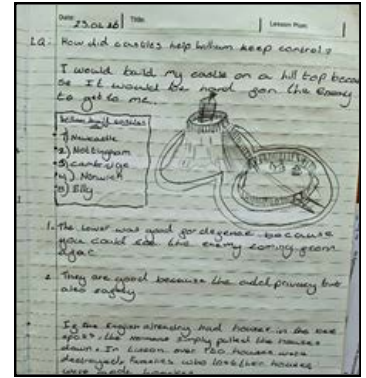 Date: 23.02.26 Title: Lesson Num:
LQ: How did castles help William keep control?
I would build my castle on a hill top becau
se It would be hard for the enemy
to get to me.
William built castles
1) Newcastle
2) Nottingham
3) Cambridge
4) Norwich
5) Elly
1. The tower was good for defence because
you could see the enemy coming from
afar
2 They are good because the add privacy but
also safety
If the English already had houses in the best
spots, the Normans simply pulled the houses
down. In Lincoln over 160 houses were
destroyed, families who lost their houses
were made homeless